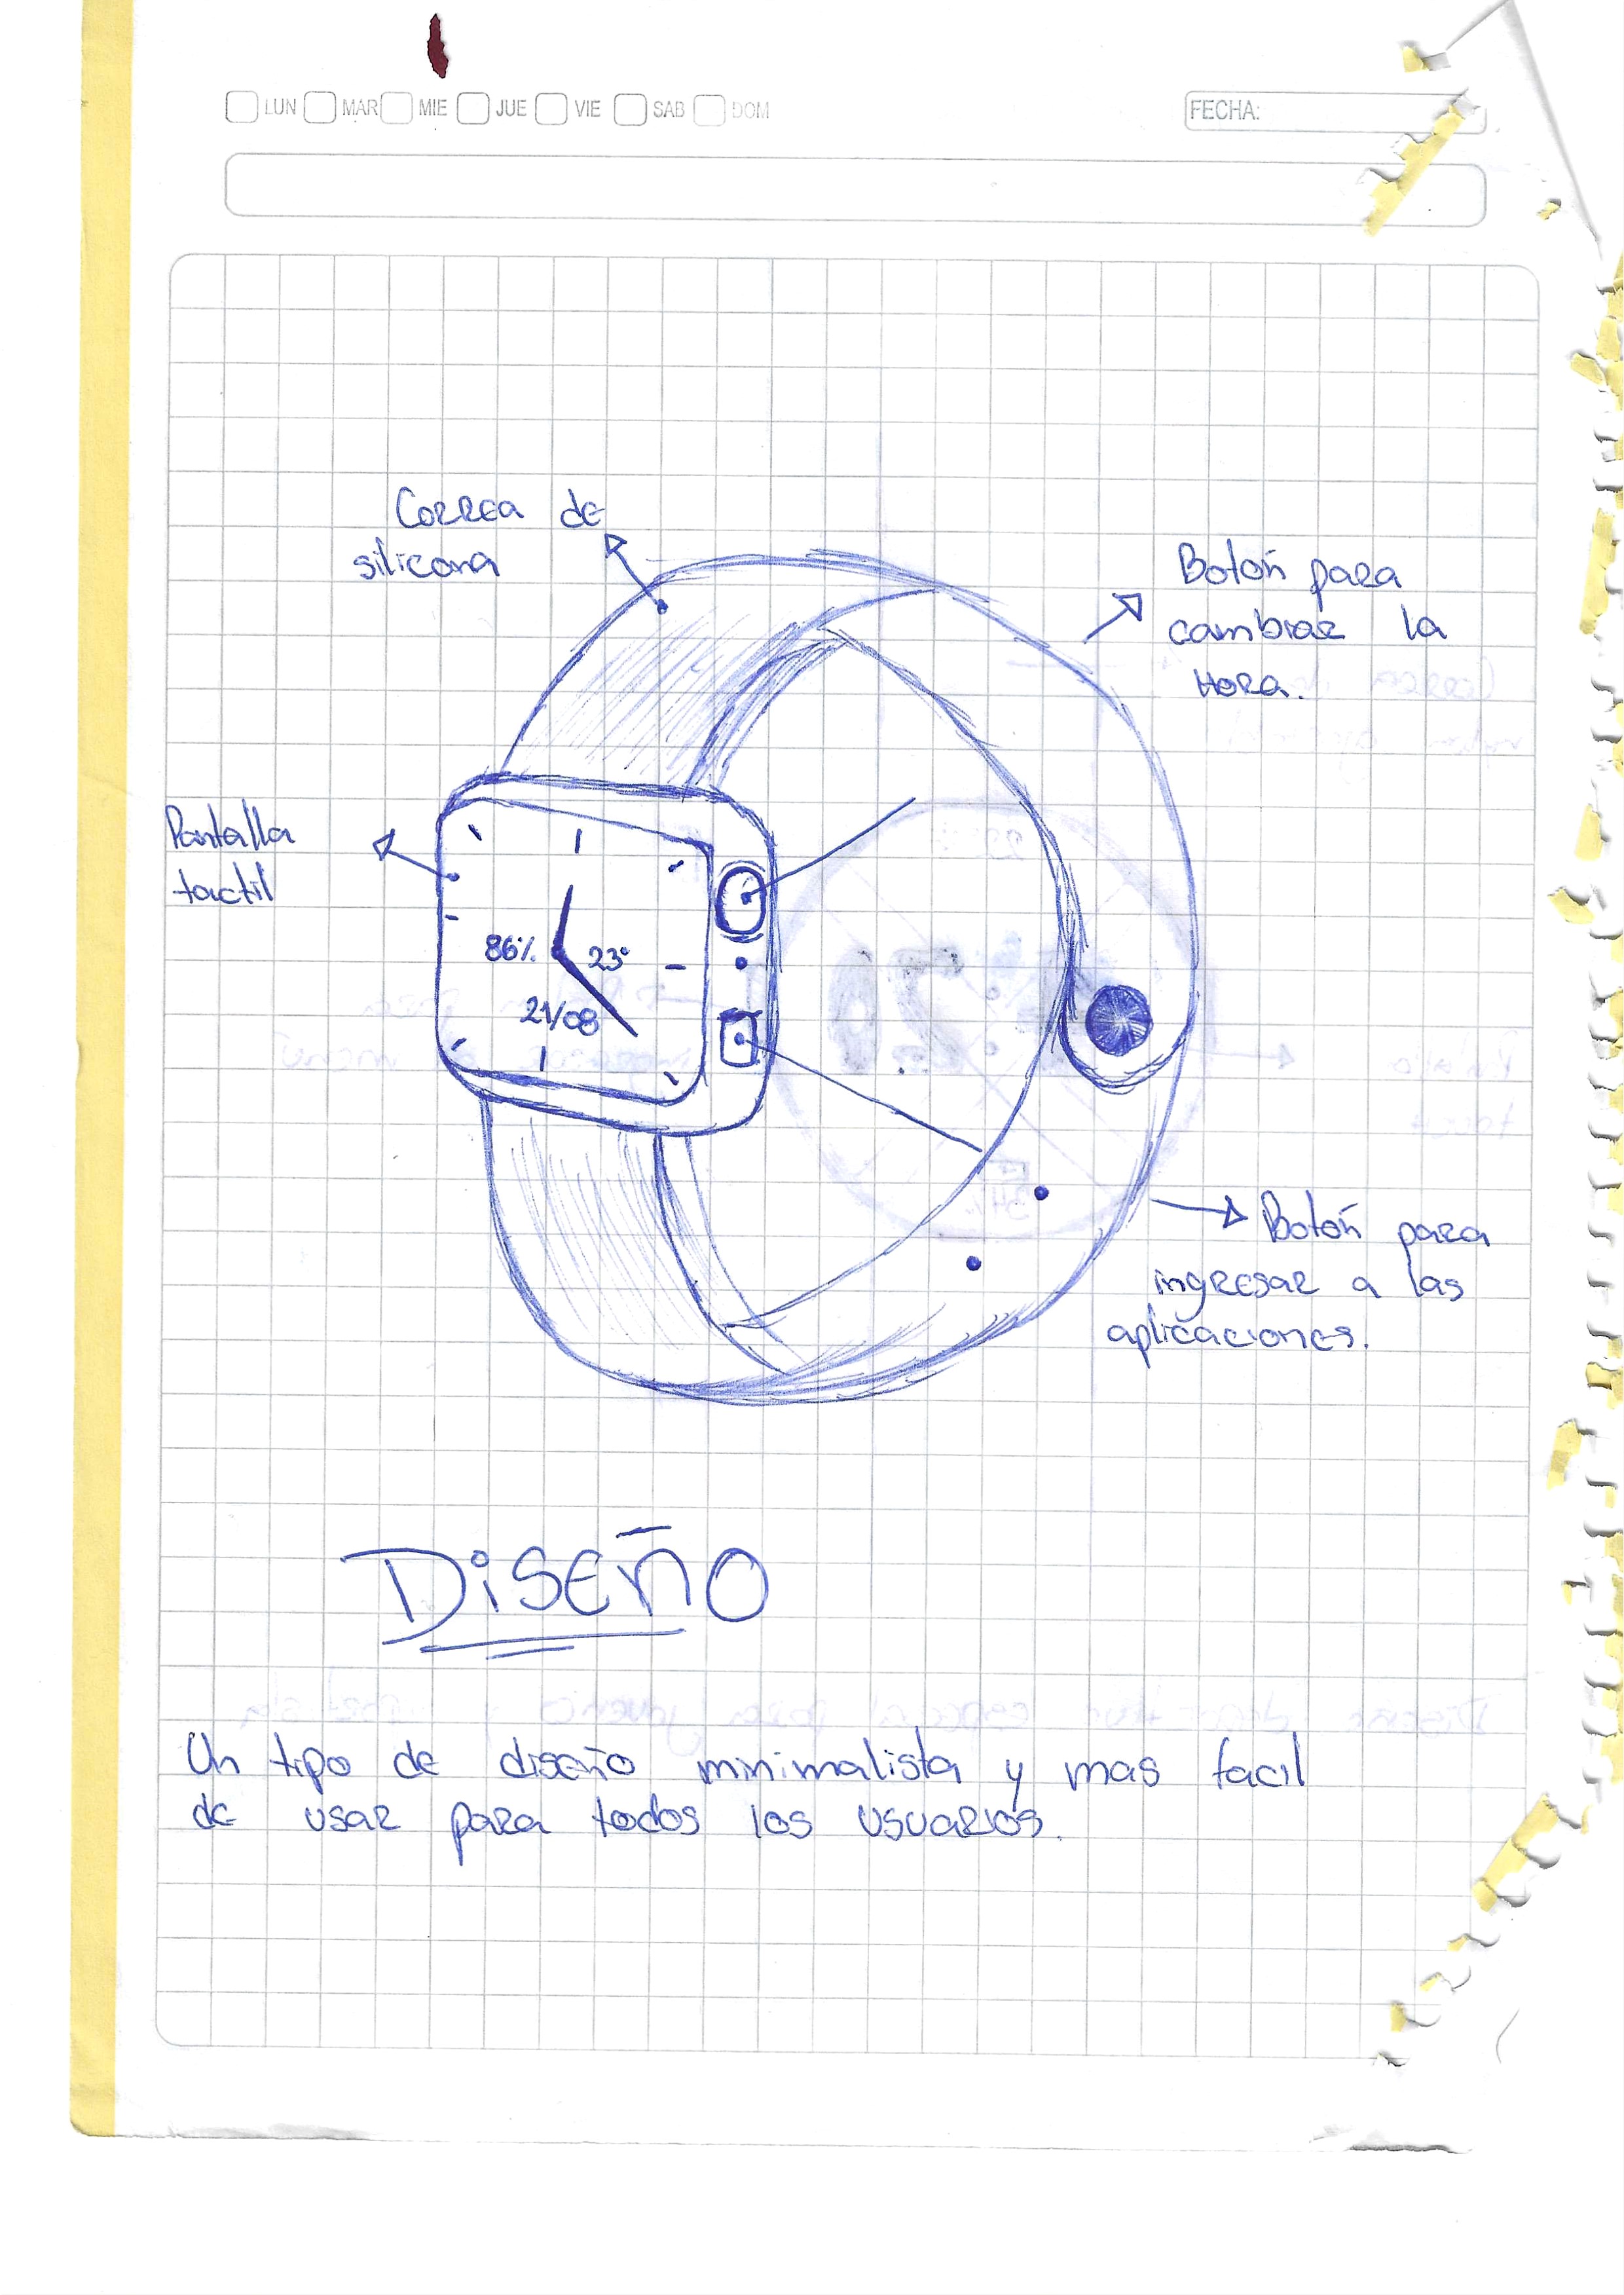 LUN MAR MIE JUE VIE SAB DOM
FECHA:
Correa de
silicona
Botoñ para
cambiar la
Hora.
Pantalla
tactil
86%
23°
21/08
Botoñ para
ingresar a las
aplicaciones.
DiSEÑO
Un tipo de diseño minimalista y mas facil
de usar para todos los usuarios.